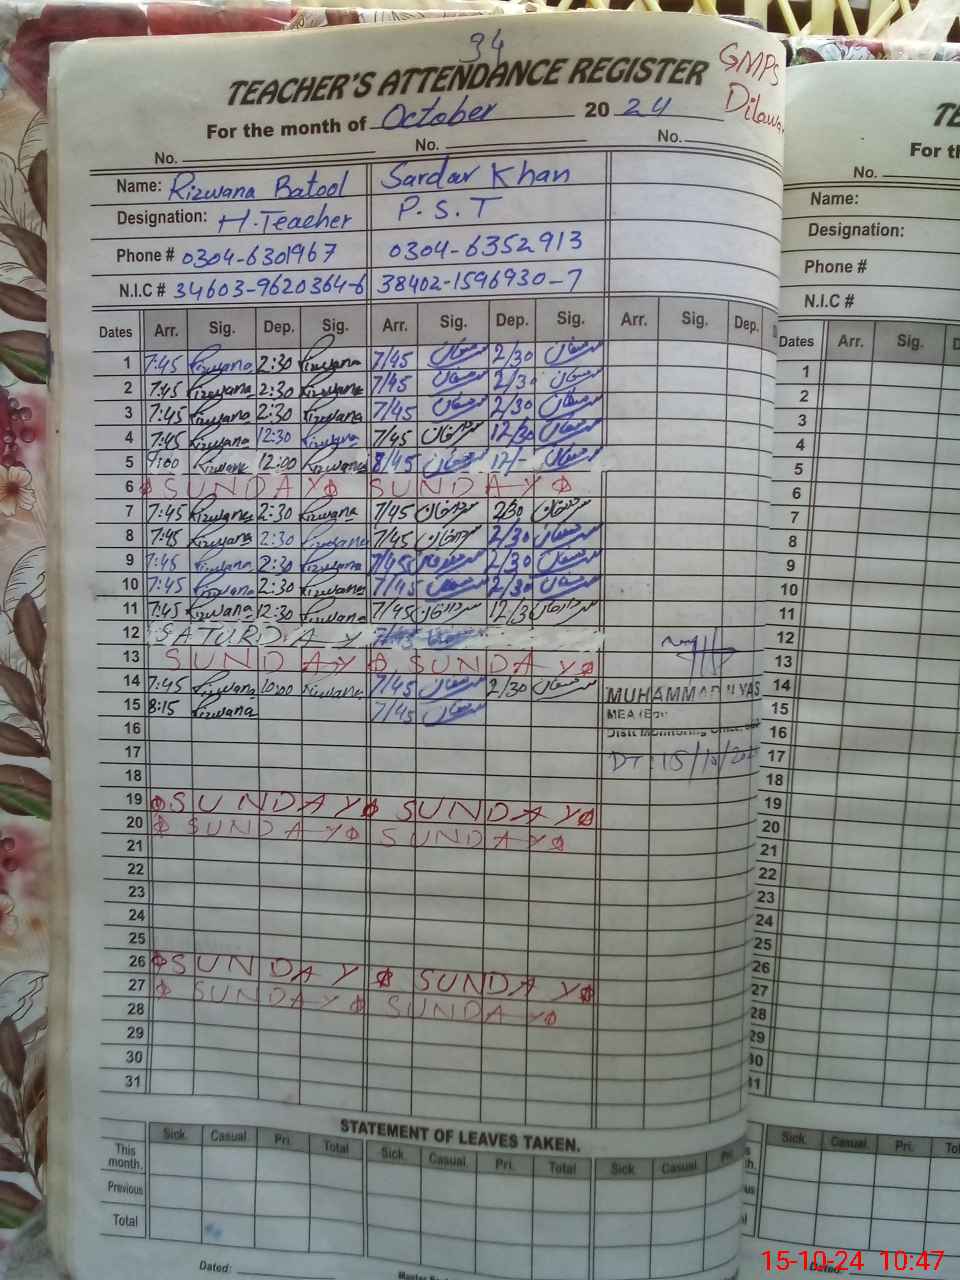 94
TEACHER'S ATTENDANCE REGISTER GMPS
For the month of October 2024
No. No. No.
Name: Rizwana Batool Sardar Khan
Designation: H.Teacher P.S.T
Phone # 0304-6301967 0304-6352913
N.I.C # 34603-9620364-6 38402-1596930-7
Dates Arr. Sig. Dep. Sig. Arr. Sig. Dep. Sig. Arr. Sig. Dep.
1 7:45 Rizwana 2:30 Rizwana 7/45 2/30
2 7:45 Rizwana 2:30 Rizwana 7/45 2/30
3 7:45 Rizwana 2:30 Rizwana 7/45 2/30
4 7:45 Rizwana 12:30 Rizwana 7/45 سردارخان 12/30
5 9:00 Rizwana 12:00 Rizwana 8/45 12/-
6 SUNDAY SUNDAY
7 7:45 Rizwana 2:30 Rizwana 7/45 سردارخان 2/30 سردارخان
8 7:45 Rizwana 2:30 Rizwana 7/45 سردارخان 2/30
9 7:45 Rizwana 2:30 Rizwana 7/45 2/30
10 7:45 Rizwana 2:30 Rizwana 7/45 2/30
11 7:45 Rizwana 12:30 Rizwana 7/45 سردارخان 12/3 سردارخان
12 SATURDAY 7/45
13 SUNDAY SUNDAY
14 7:45 Rizwana 10:00 Rizwana 7/45 2/30 سردارخان MUHAMMAD ILYAS
15 8:15 Rizwana 7/45 MEA
16
17 DT: 15/10/20
18
19 SUNDAY SUNDAY
20 SUNDAY SUNDAY
21
22
23
24
25
26 SUNDAY SUNDAY
27 SUNDAY SUNDAY
28
29
30
31
STATEMENT OF LEAVES TAKEN.
Sick. Casual. Pri. Total Sick. Casual. Pri. Total Sick. Casual. Pri.
This month.
Previous
Total
Dated:
No.
Name:
Designation:
Phone #
N.I.C #
Dates Arr. Sig.
1
2
3
4
5
6
7
8
9
10
11
12
13
14
15
16
17
18
19
20
21
22
23
24
25
26
27
28
29
30
31
Sick. Casual. Pri.
15-10-24 10:47